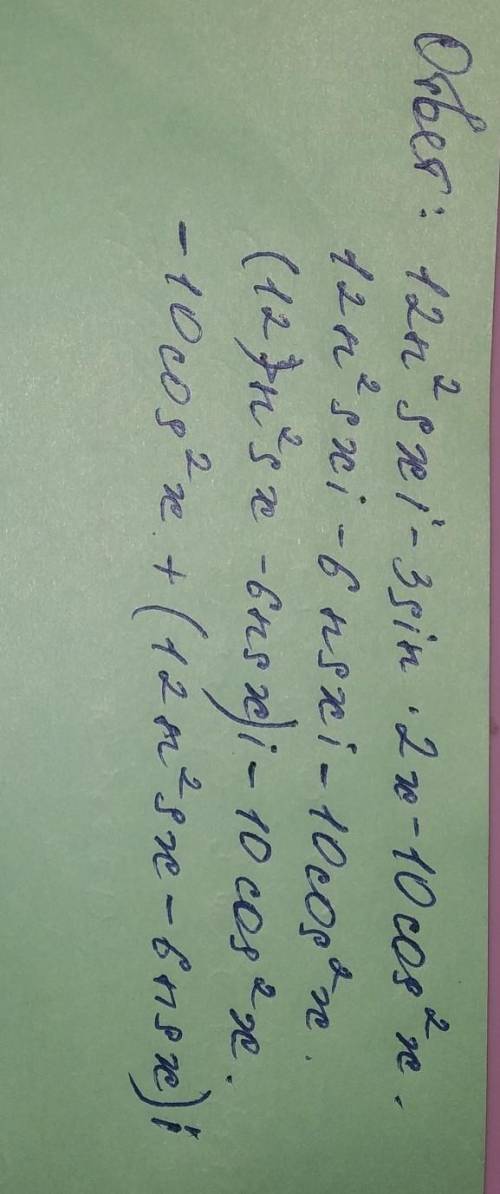 Ответ: 12n²sxi - 3sin · 2x - 10cos²x.
12n²sxi - 6nsxi - 10cos²x.
(12n²sx - 6nsx)i - 10cos²x.
-10cos²x + (12n²sx - 6nsx)i